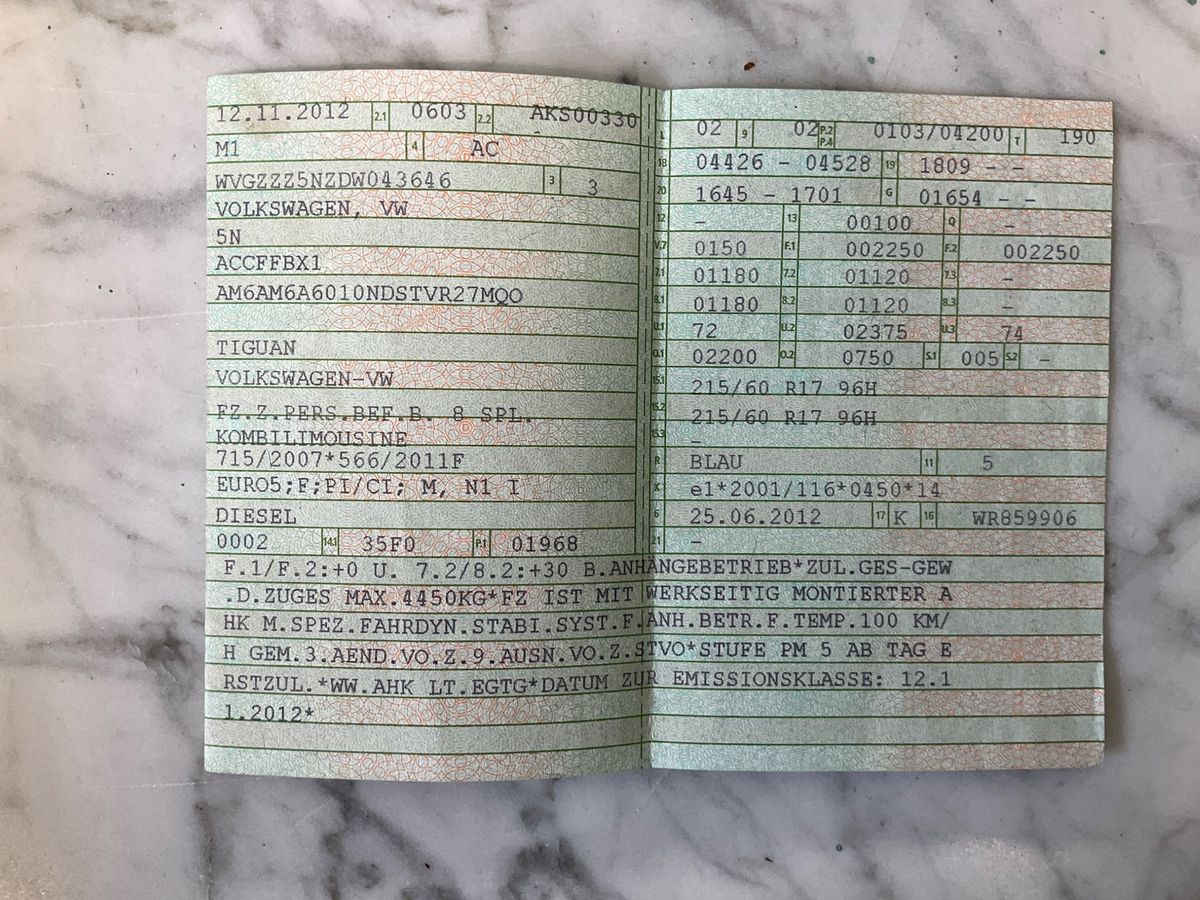 12.11.2012 2.1 0603 2.2 AKS00330
M1 4 AC
WVGZZZ5NZDW043646 3 3
VOLKSWAGEN, VW
5N
ACCFFBX1
AM6AM6A6010NDSTVR27MQO
TIGUAN
VOLKSWAGEN-VW
FZ.Z.PERS.BEF.B. 8 SPL.
KOMBILIMOUSINE
715/2007*566/2011F
EURO5;F;PI/CI; M, N1 I
DIESEL
0002 14.1 35F0 P.1 01968
L 02 9 02 P.2 P.4 0103/04200 T 190
18 04426 - 04528 19 1809 - -
20 1645 - 1701 G 01654 - -
12 - 13 00100 Q -
V.7 0150 F.1 002250 F.2 002250
7.1 01180 7.2 01120 7.3 -
8.1 01180 8.2 01120 8.3 -
U.1 72 U.2 02375 U.3 74
O.1 02200 O.2 0750 S.1 005 S.2 -
15.1 215/60 R17 96H
15.2 215/60 R17 96H
15.3 -
R BLAU 11 5
K e1*2001/116*0450*14
6 25.06.2012 17 K 16 WR859906
21 -
F.1/F.2:+0 U. 7.2/8.2:+30 B.ANHÄNGEBETRIEB*ZUL.GES-GEW
.D.ZUGES MAX.4450KG*FZ IST MIT WERKSEITIG MONTIERTER A
HK M.SPEZ.FAHRDYN.STABI.SYST.F.ANH.BETR.F.TEMP.100 KM/
H GEM.3.AEND.VO.Z.9.AUSN.VO.Z.STVO*STUFE PM 5 AB TAG E
RSTZUL.*WW.AHK LT.EGTG*DATUM ZUR EMISSIONSKLASSE: 12.1
1.2012*